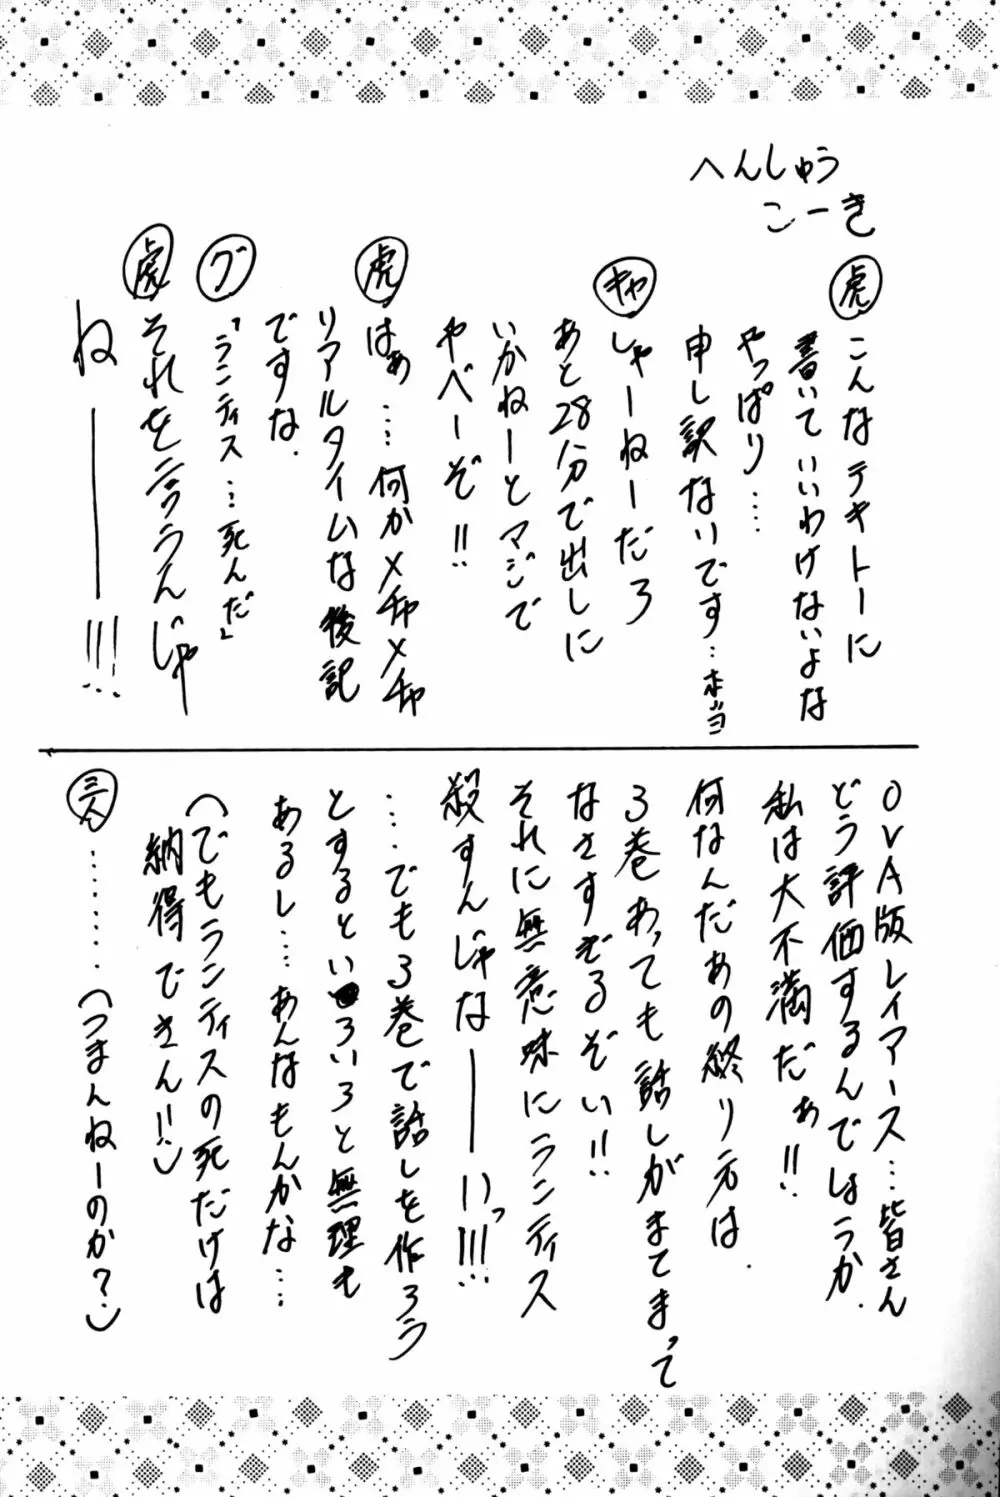 へんしゅう
こーき
虎 こんなテキトーに
書いていいわけないよな
やっぱり‥‥
申し訳ないです…本当
キャ しゃーねーだろ
あと28分で出しに
いかねーとマジで
やべーぞ!!
虎 はぁ‥‥何かメチャメチャ
リアルタイムな後記
ですな.
グ 「ランティス…死んだ」
虎 それを言うんじゃ
ね―――!!!…
OVA版レイアース…皆さん
どう評価するんでしょうか.
私は大不満だぁ!!
何なんだあの終り方は.
3巻あっても話しがまてまって
なさすぎるぞい!!
それに無意味にランティス
殺すんじゃな――いっ!!!…
…でも3巻で話しを作ろう
とするといろいろと無理も
あるし…あんなもんかな…
(でもランティスの死だけは
納得できん!!)
三人 ‥‥‥‥(つまんねーのか?)